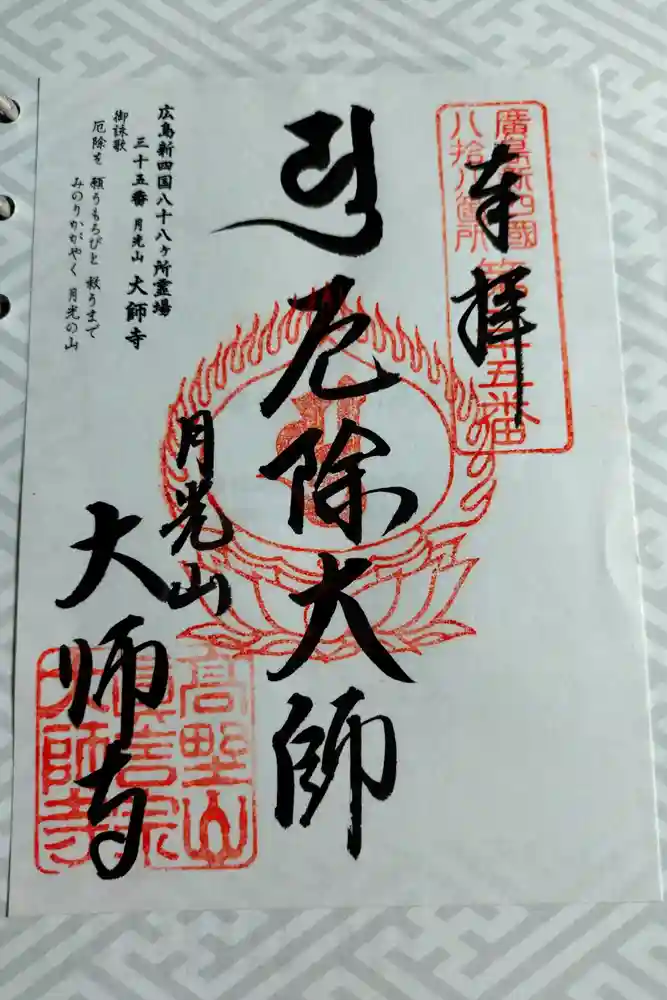 奉拝
廣島新四國
八拾八箇所
第三十五番
厄除大師
月光山
大師寺
高野山
真言宗
大師寺
広島新四国八十八ヶ所霊場
三十五番 月光山 大師寺
御詠歌
厄除を 願うもろびと 救うまで
みのりかがやく 月光の山